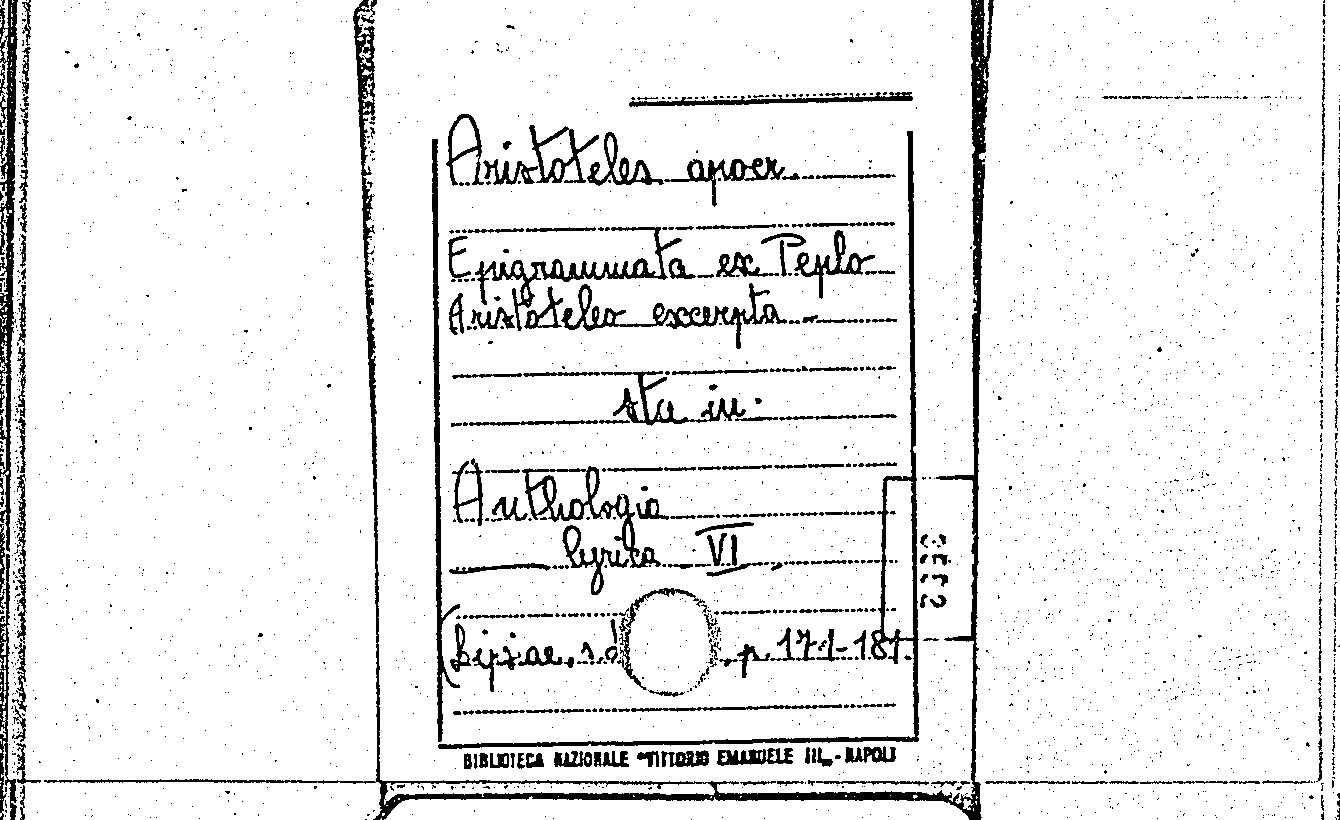 Aristoteles apocr.
Epigrammata ex Peplo
Aristoteleo excerpta -
sta in.
Anthologia
lyrica VI
(Lipsiae, s.d , p. 171-181.
BIBLIOTECA NAZIONALE "VITTORIO EMANUELE III„ - NAPOLI